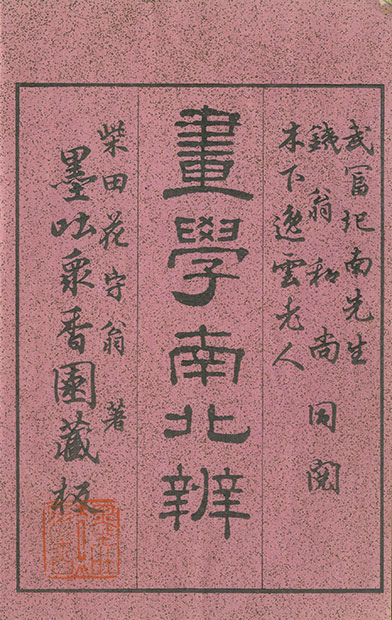 武富圯南先生
鐵翁和尚同閲
木下逸雲老人
畫學南北辨
柴田花守翁著
墨吐衆香園藏板